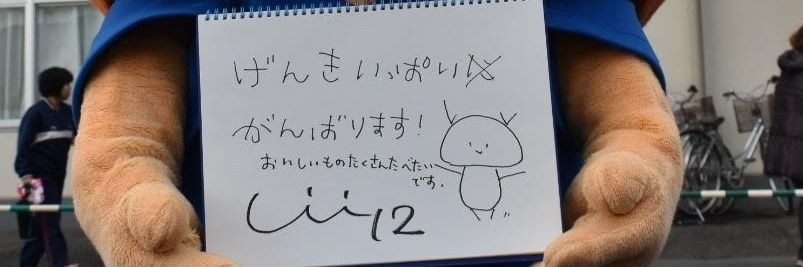 げんきいっぱい
がんばります!
おいしいものたくさんたべたい
です.
12